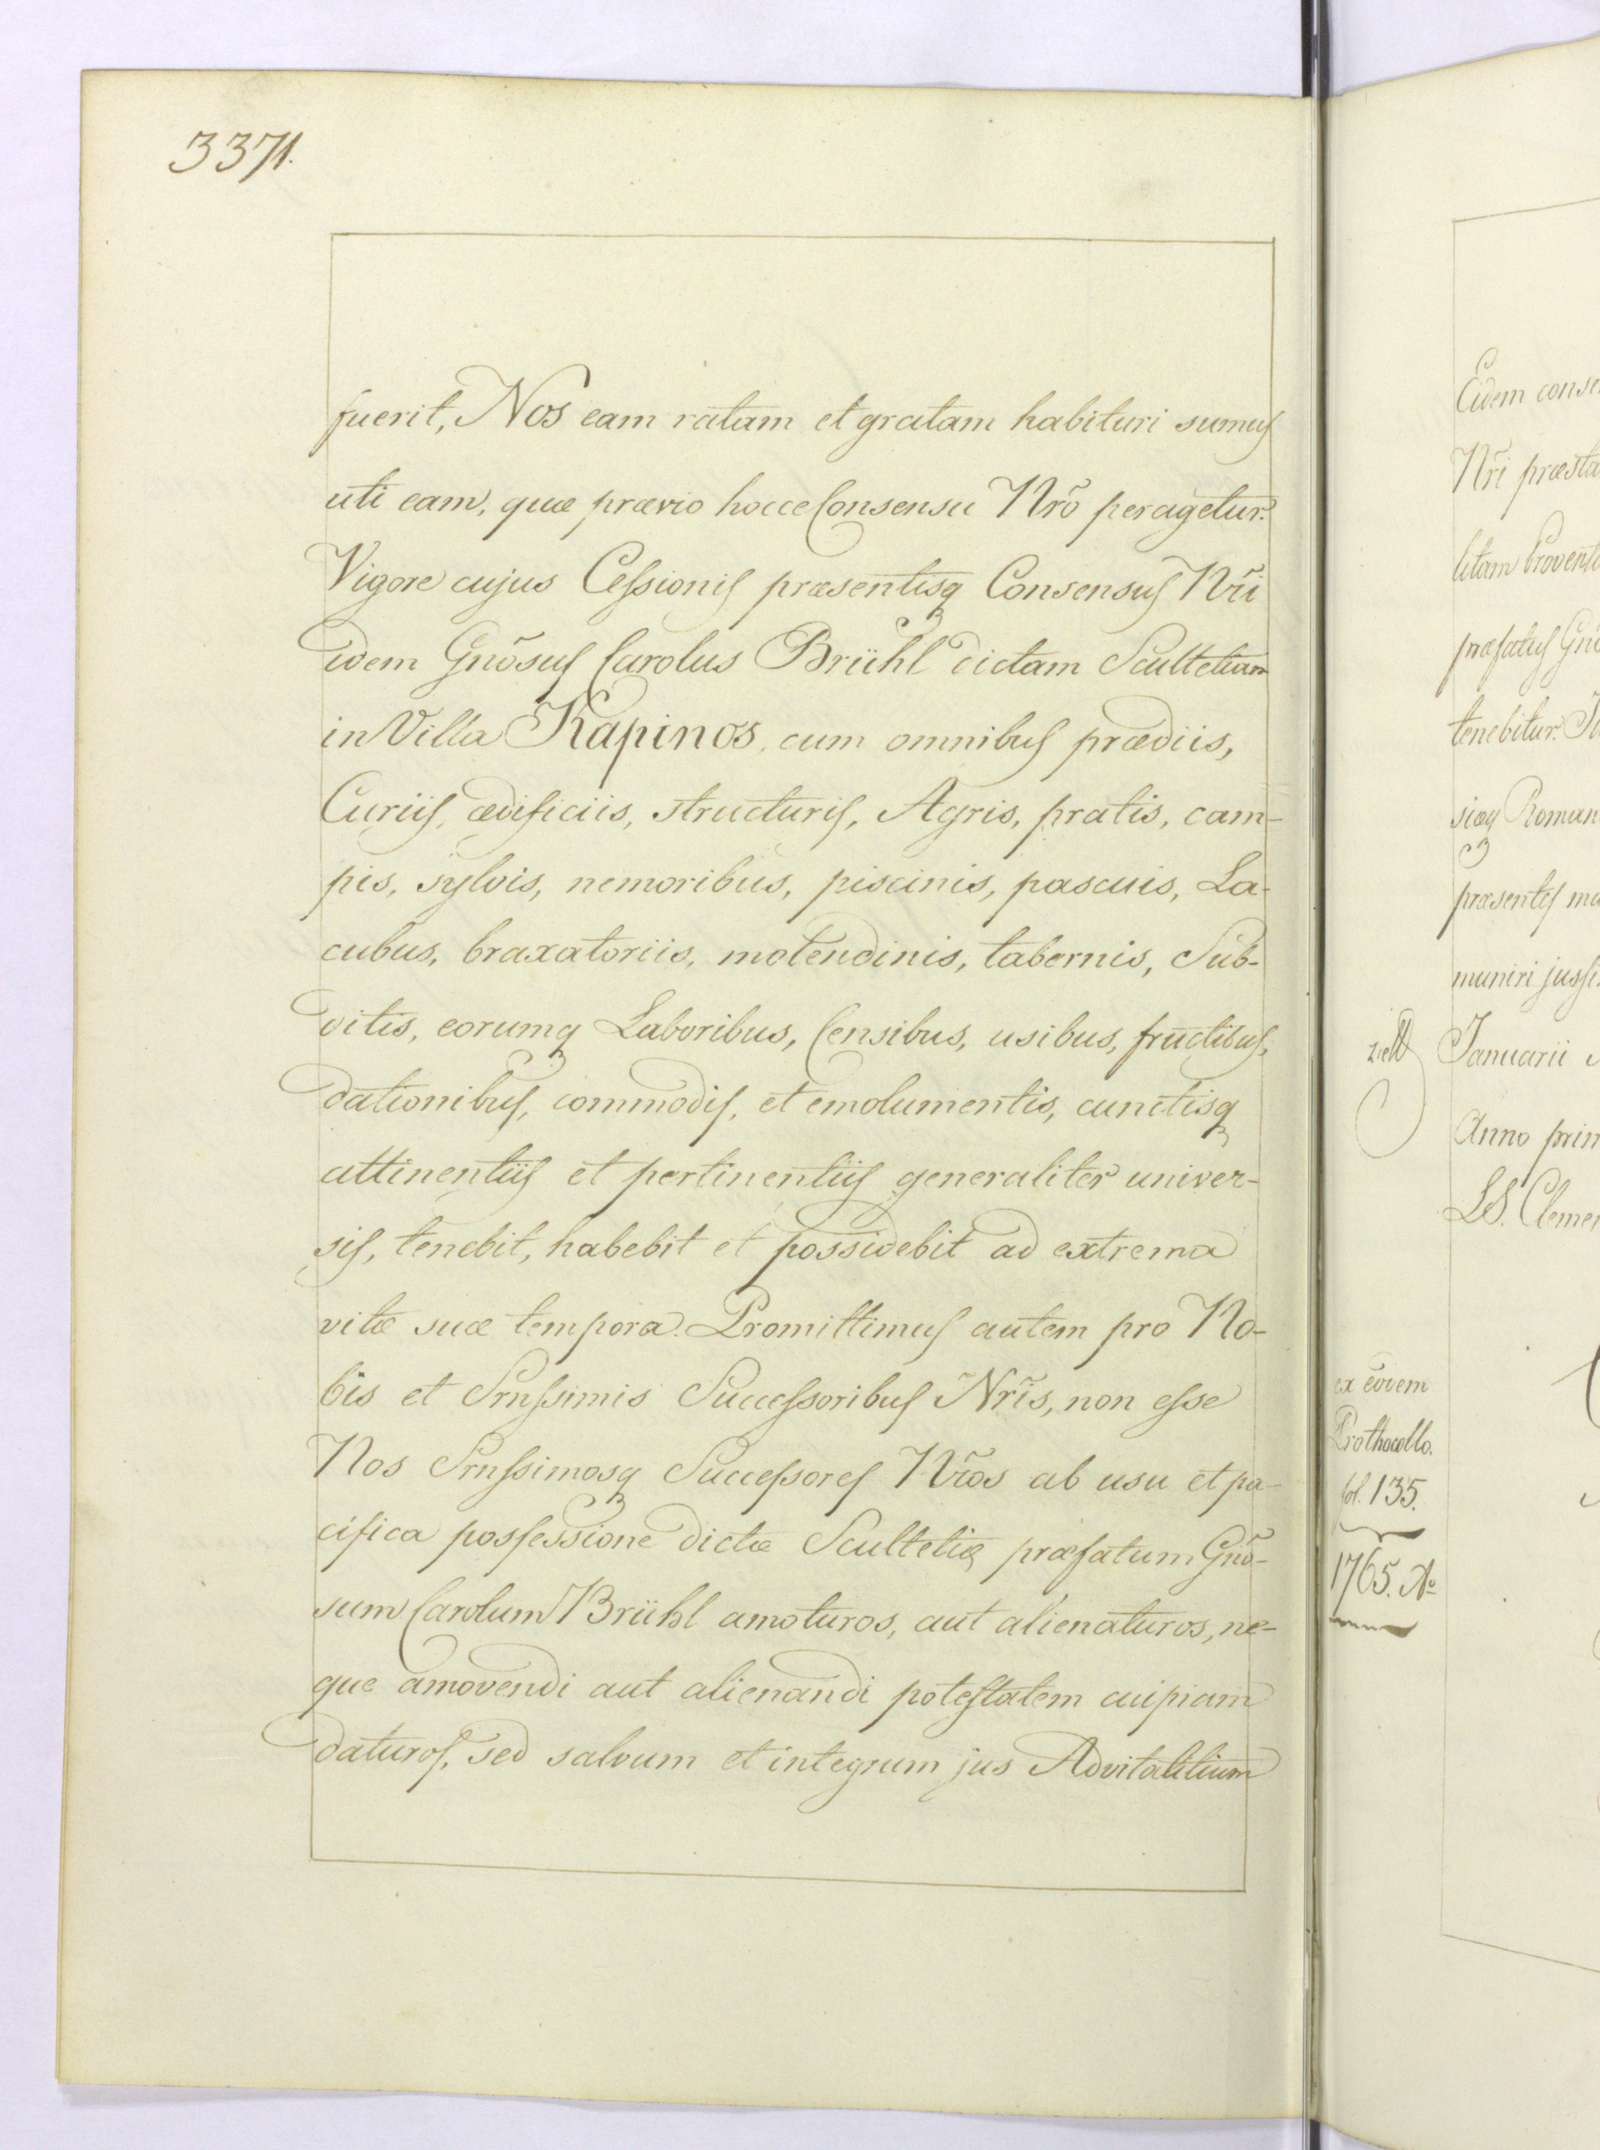 3371.
fuerit, Nos eam ratam et gratam habituri sumus
uti eam, quæ prævio hocce Consensu Nrõ peragetur.
Vigore cujus Cessionis præsentisq Consensus Nrĩ
idem Gnõsus Carolus Brühl dictam Scultetiam
in Villa Kapinos, cum omnibus prædiis,
Curiis, ædificiis, structuris, Agris, pratis, cam-
pis, sylvis, nemoribus, piscinis, pascuis, La-
cubus, braxatoriis, molendinis, tabernis, Sub-
ditis, eorumq Laboribus, Censibus, usibus, fructibus,
dationibus, commodis, et emolumentis, cunctisq
attinentiis et pertinentiis generaliter univer-
sis, tenebit, habebit et possidebit ad extrema
vitæ suæ tempora. Promittimus autem pro No-
bis et Srnssimis Successoribus Nrĩs, non esse
Nos Srnssimosq Successores Nrõs ab usu et pa-
cifica possessione dictæ Scultetiæ præfatum Gnõ-
sum Carolum Brühl amoturos, aut alienaturos, ne-
que amovendi aut alienandi potestatem cuipiam
daturos, sed salvum et integrum jus Advitalitium
Eidem conse
Nrĩ præsta
litam Provent
præfatus Gnõ
tenebitur.
siæq Roman
præsentes ma
muniri jussi
Januarii
Anno prim
LS. Clemen
ex eodem
Prothocollo.
fol. 135.
1765. Aº